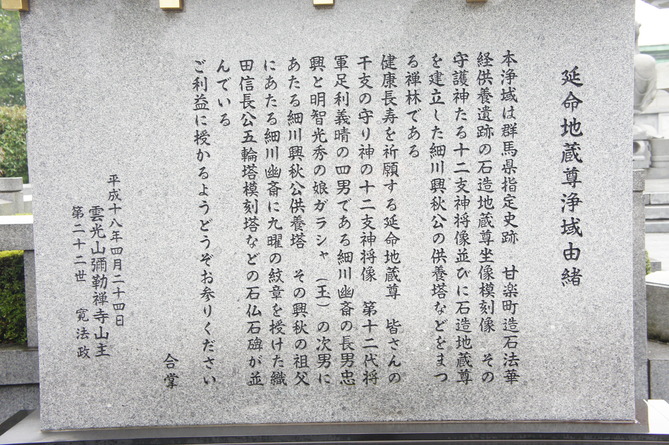 延命地蔵尊浄域由緒
本浄域は群馬県指定史跡　甘楽町造石法華
経供養遺跡の石造地蔵尊坐像模刻像　その
守護神たる十二支神将像並びに石造地蔵尊
を建立した細川興秋公の供養塔などをまつ
る禅林である
健康長寿を祈願する延命地蔵尊　皆さんの
干支の守り神の十二支神将像　第十二代将
軍足利義晴の四男である細川幽斎の長男忠
興と明智光秀の娘ガラシャ（玉）の次男に
あたる細川興秋公供養塔　その興秋の祖父
にあたる細川幽斎に九曜の紋章を授けた織
田信長公五輪塔模刻塔などの石仏石碑が並
んでいる
ご利益に授かるようどうぞお参りください
合掌
平成十八年四月二十四日
雲光山彌勒禅寺山主
第二十二世　寛法政